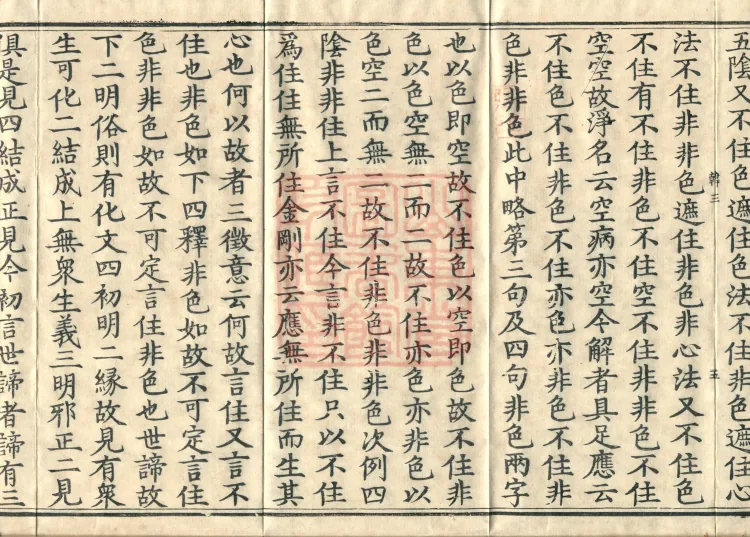 五陰又不住色遮住色法不住非色遮住心
法不住非非色遮住非色非心法又不住色
不住有不住非色不住空不住非非色不住
空空故淨名云空病亦空今解者具足應云
不住色不住非色不住亦色亦非色不住非
色非非色此中略第三句及四句非色兩字
也以色即空故不住色以空即色故不住非
色以色空無二而二故不住亦色亦非色以
色空二而無二故不住非色非非色次例四
陰非非住上言不住今言非不住只以不住
為住住無所住金剛亦云應無所住而生其
心也何以故者三徵意云何故言住又言不
住也非色如下四釋非色如故不可定言住
色非非色如故不可定言住非色也世諦故
下二明俗則有化文四初明二緣故見有衆
生可化二結成上無衆生義三明邪正二見
俱是見四結成正見今初言世諦者諦有三
韓三
五